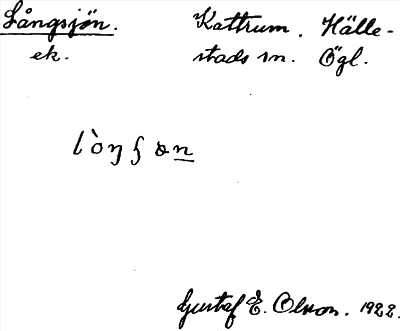 Långsjön. Kattrum. Hälle-
ek. stads sn. Ögl.
lòŋʃøn
Gustaf E. Olsson. 1922.